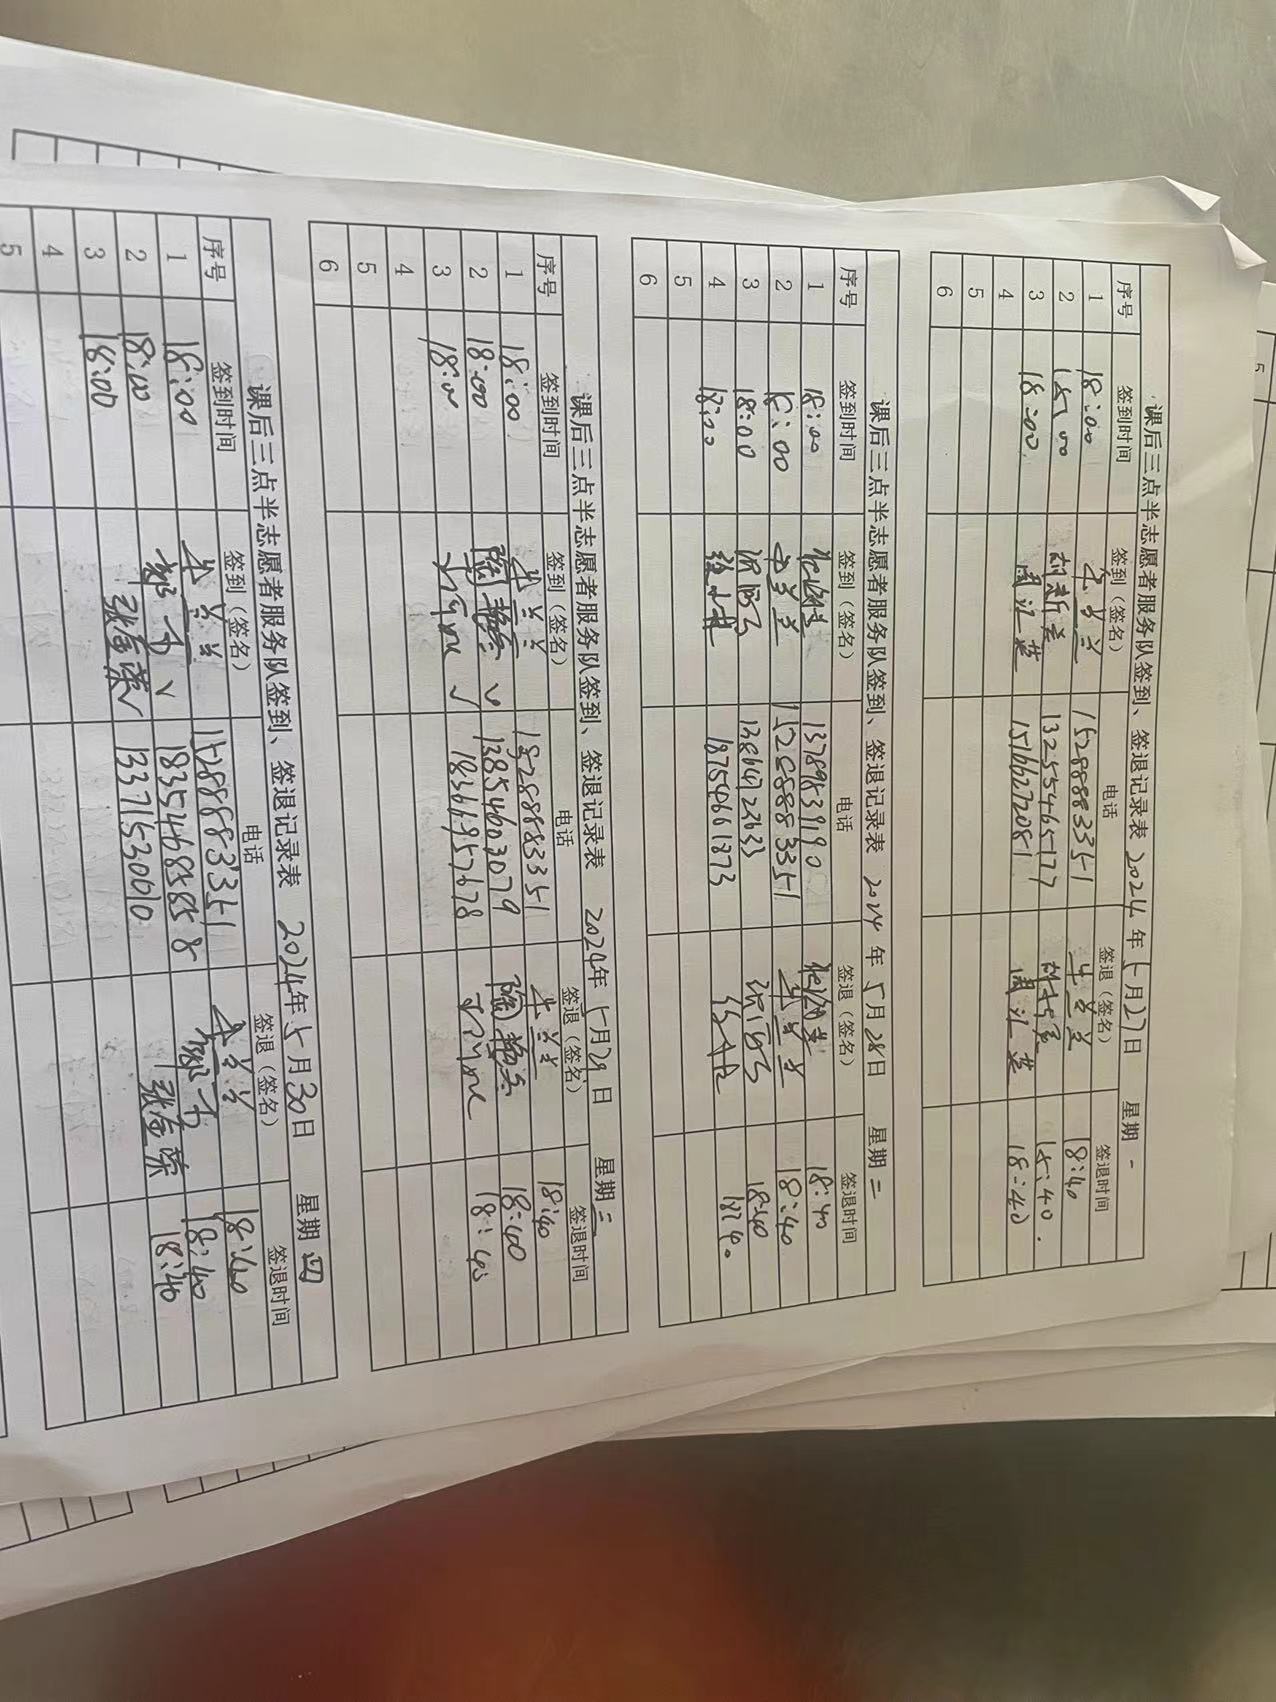 课后三点半志愿者服务队签到、签退记录表 2024年5月27日 星期一
序号 签到时间 签到（签名） 电话 签退（签名） 签退时间
1 18:00 15288883351 18:40
2 18:00 13255465177 18:40
3 18:00 周汇营 15166272081 周汇营 18:40
4
5
6
课后三点半志愿者服务队签到、签退记录表 2024年5月28日 星期二
序号 签到时间 签到（签名） 电话 签退（签名） 签退时间
1 18:00 13789839190 18:40
2 18:00 15288883351 18:40
3 18:00 18:40
4 18:00 18754661873 18:40
5
6
课后三点半志愿者服务队签到、签退记录表 2024年5月29日 星期三
序号 签到时间 签到（签名） 电话 签退（签名） 签退时间
1 18:00 15288883351 18:40
2 18:00 13854603079 18:40
3 18:00 18366957678 18:40
4
5
6
课后三点半志愿者服务队签到、签退记录表 2024年5月30日 星期四
序号 签到时间 签到（签名） 电话 签退（签名） 签退时间
1 18:00 15288883351 18:40
2 18:00 18354685858 18:40
3 18:00 张金荣 13371530010 张金荣 18:40
4
5